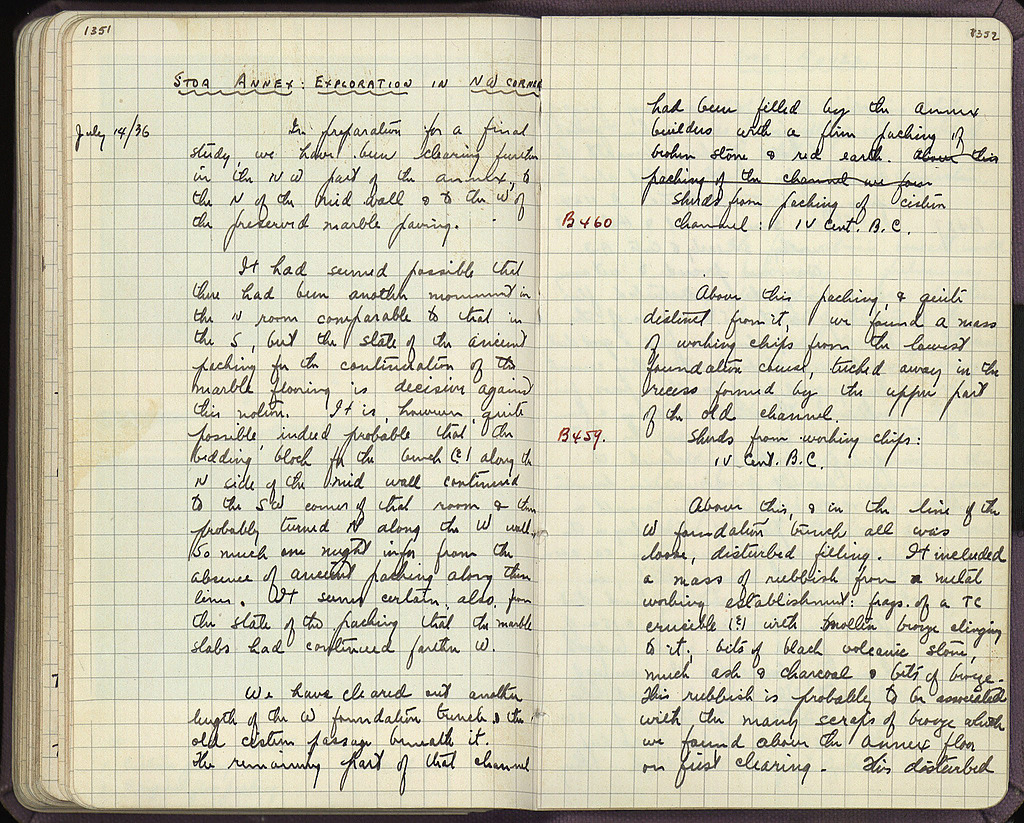 1351
STOA ANNEX: EXPLORATION IN NW CORNER
July 14/36
In preparation for a final
study, we have been clearing further
in the NW part of the annex, to
the N of the mid wall & to the W of
the preserved marble paving.
It had seemed possible that
there had been another monument in
the N room comparable to that in
the S, but the state of the ancient
packing for the continuation of the
marble flooring is decisive against
this notion. It is, however, quite
possible, indeed probable that the
bedding block for the bench (?) along the
N side of the mid wall continued
to the SW corner of that room & then
probably turned N along the W wall.
So much one might infer from the
absence of ancient packing along these
lines. It seems certain, also, from
the state of the packing that the marble
slabs had continued further W.
We have cleared out another
length of the W foundation trench & the
old cistern passage beneath it.
The remaining part of that channel
1352
had been filled by the annex
builders with a firm packing of
broken stone & red earth. Above this
packing of the channel we foun
sherds from packing of cistern
B460 channel: IV Cent. B.C.
Above this packing, & quite
distinct from it, we found a mass
of working chips from the lowest
foundation course, tucked away in the
recess formed by the upper part
of the old channel.
B459. Sherds from working chips:
IV Cent. B.C.
Above this, & in the line of the
W foundation trench all was
loose, disturbed filling. It included
a mass of rubbish from a metal
working establishment: frags. of a TC
crucible (?) with molten bronze clinging
to it; bits of black volcanic stone,
much ash & charcoal & bits of bronze.
This rubbish is probably to be associated
with the many scraps of bronze which
we found above the annex floor
on first clearing. This disturbed